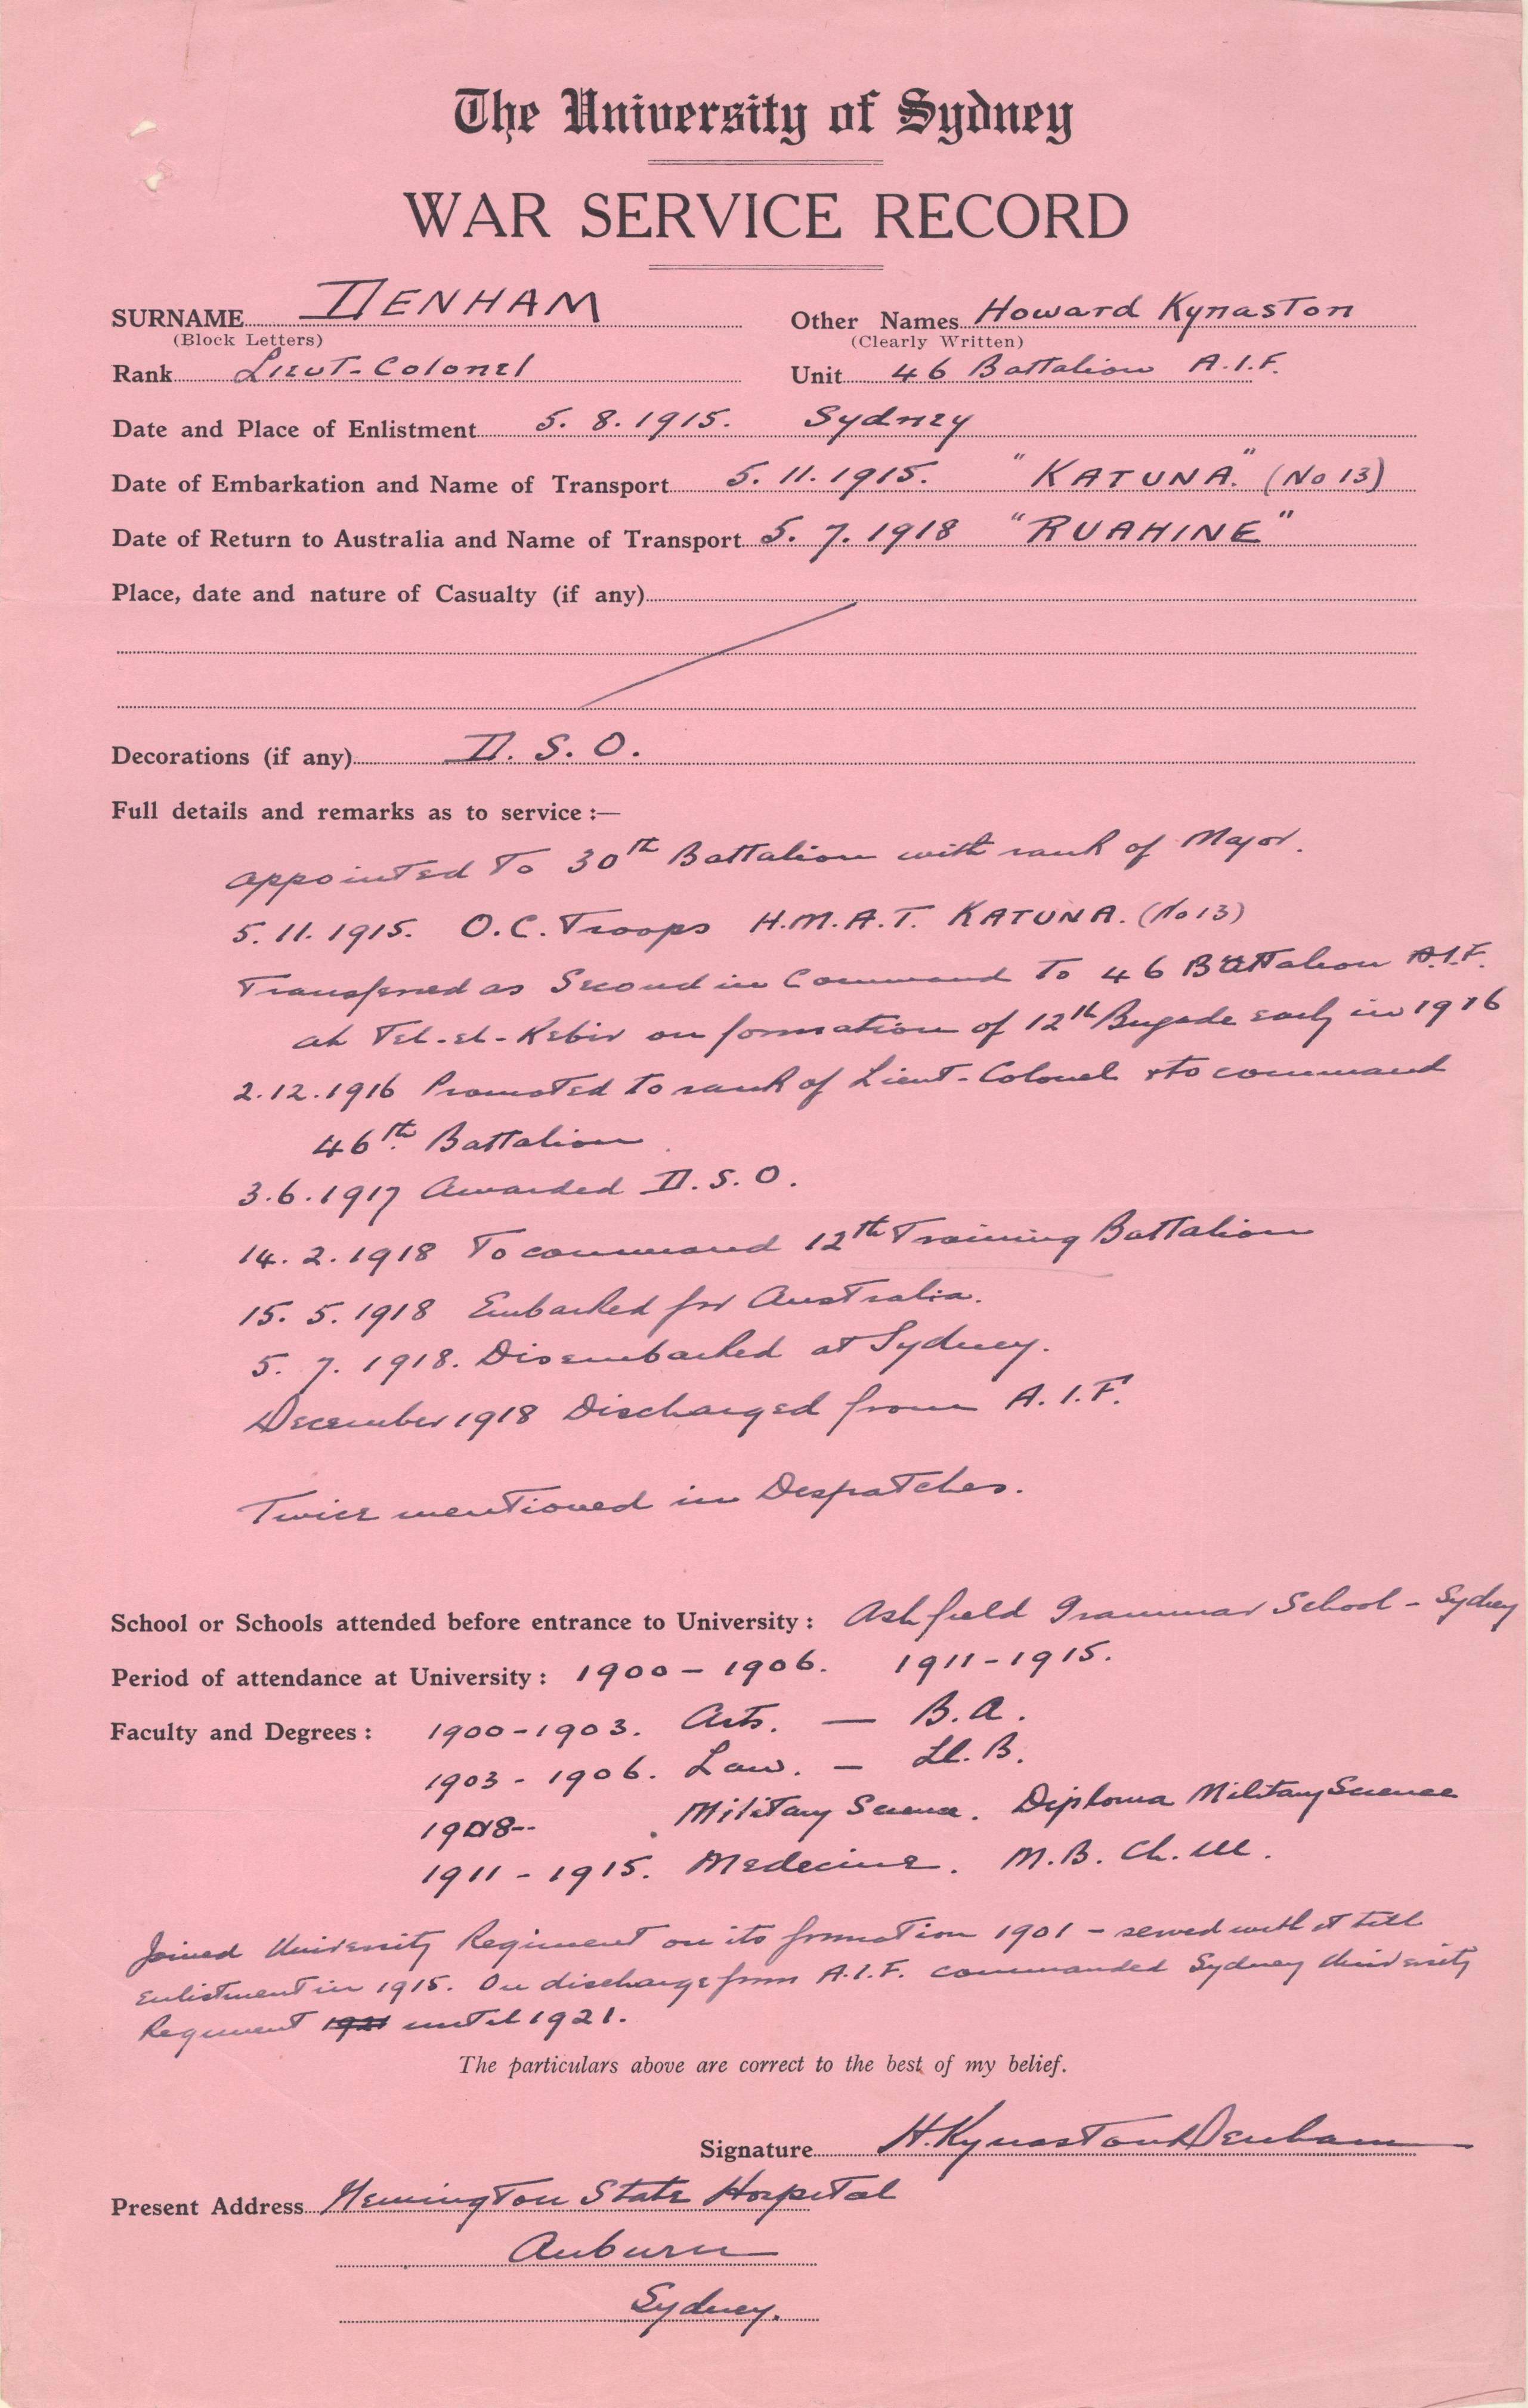 The University of Sydney
WAR SERVICE RECORD
SURNAME DENHAM Other Names Howard Kynaston
(Block Letters) (Clearly Written)
Rank Lieut-Colonel Unit 46 Battalion A.I.F.
Date and Place of Enlistment 5. 8. 1915. Sydney
Date of Embarkation and Name of Transport 5. 11. 1915. "KATUNA." (No 13)
Date of Return to Australia and Name of Transport 5. 7. 1918 "RUAHINE"
Place, date and nature of Casualty (if any)
Decorations (if any) D. S. O.
Full details and remarks as to service :—
appointed to 30th Battalion with rank of Major.
5. 11. 1915. O.C. Troops H.M.A.T. KATUNA. (No 13)
Transferred as Second in Command to 46 Battalion A.I.F.
at Tel-el-Kebir on formation of 12th Brigade early in 1916
2.12.1916 Promoted to rank of Lieut-Colonel & to command
46th Battalion
3.6.1917 Awarded D.S.O.
14. 2. 1918 To command 12th Training Battalion
15. 5. 1918 Embarked for Australia.
5. 7. 1918. Disembarked at Sydney.
December 1918 Discharged from A.I.F.
Twice mentioned in Despatches.
School or Schools attended before entrance to University : Ashfield Grammar School - Sydney
Period of attendance at University : 1900 - 1906. 1911-1915.
Faculty and Degrees : 1900-1903. Arts. — B.A.
1903 - 1906. Law. — LL.B.
1908-- Military Science. Diploma Military Science
1911 - 1915. Medecine. M.B. Ch.M.
Joined University Regiment on its formation 1901 - served with it till
enlistment in 1915. On discharge from A.I.F. commanded Sydney University
Regiment 1921 until 1921.
The particulars above are correct to the best of my belief.
Signature H. Kynaston Denham
Present Address Newington State Hospital
Auburn
Sydney.